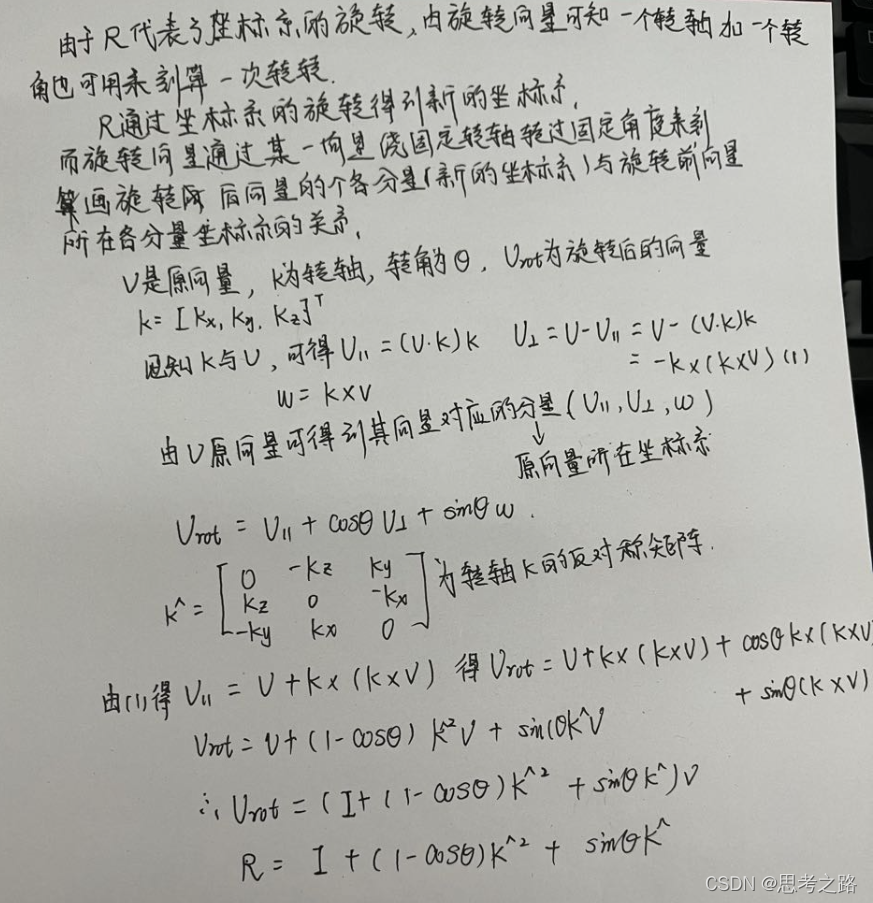 由于R代表了坐标系的旋转,由旋转向量可知一个转轴加一个转
角也可用来刻算一次转转.
R通过坐标系的旋转得到新的坐标系,
而旋转向量通过某一向量绕固定转轴转过固定角度来刻
画旋转后向量的个各分量(新的坐标系)与旋转前向量
所在各分量坐标系的关系,
V是原向量, k为转轴, 转角为θ, Vrot为旋转后的向量
k=[kx, ky, kz]ᵀ
已知k与V, 可得V∥=(V·k)k V⊥=V-V∥=V-(V·k)k
=-k×(k×V) (1)
w=k×v
由V原向量可得到其向量对应的分量(V∥,V⊥,w)
↓
原向量所在坐标系
Vrot = V∥+cosθV⊥+sinθw.
k^=[0 -kz ky
kz 0 -kx
-ky kx 0] 为转轴k的反对称矩阵.
由(1)得 V∥=V+k×(k×V) 得Vrot=V+k×(k×V)+cosθk×(k×V)
+sinθ(k×V)
Vrot=V+(1-cosθ)k^²V+sin(θk^V
∴Vrot=(I+(1-cosθ)k^²+sinθk^)V
R=I+(1-cosθ)k^²+sinθk^
CSDN @思考之路